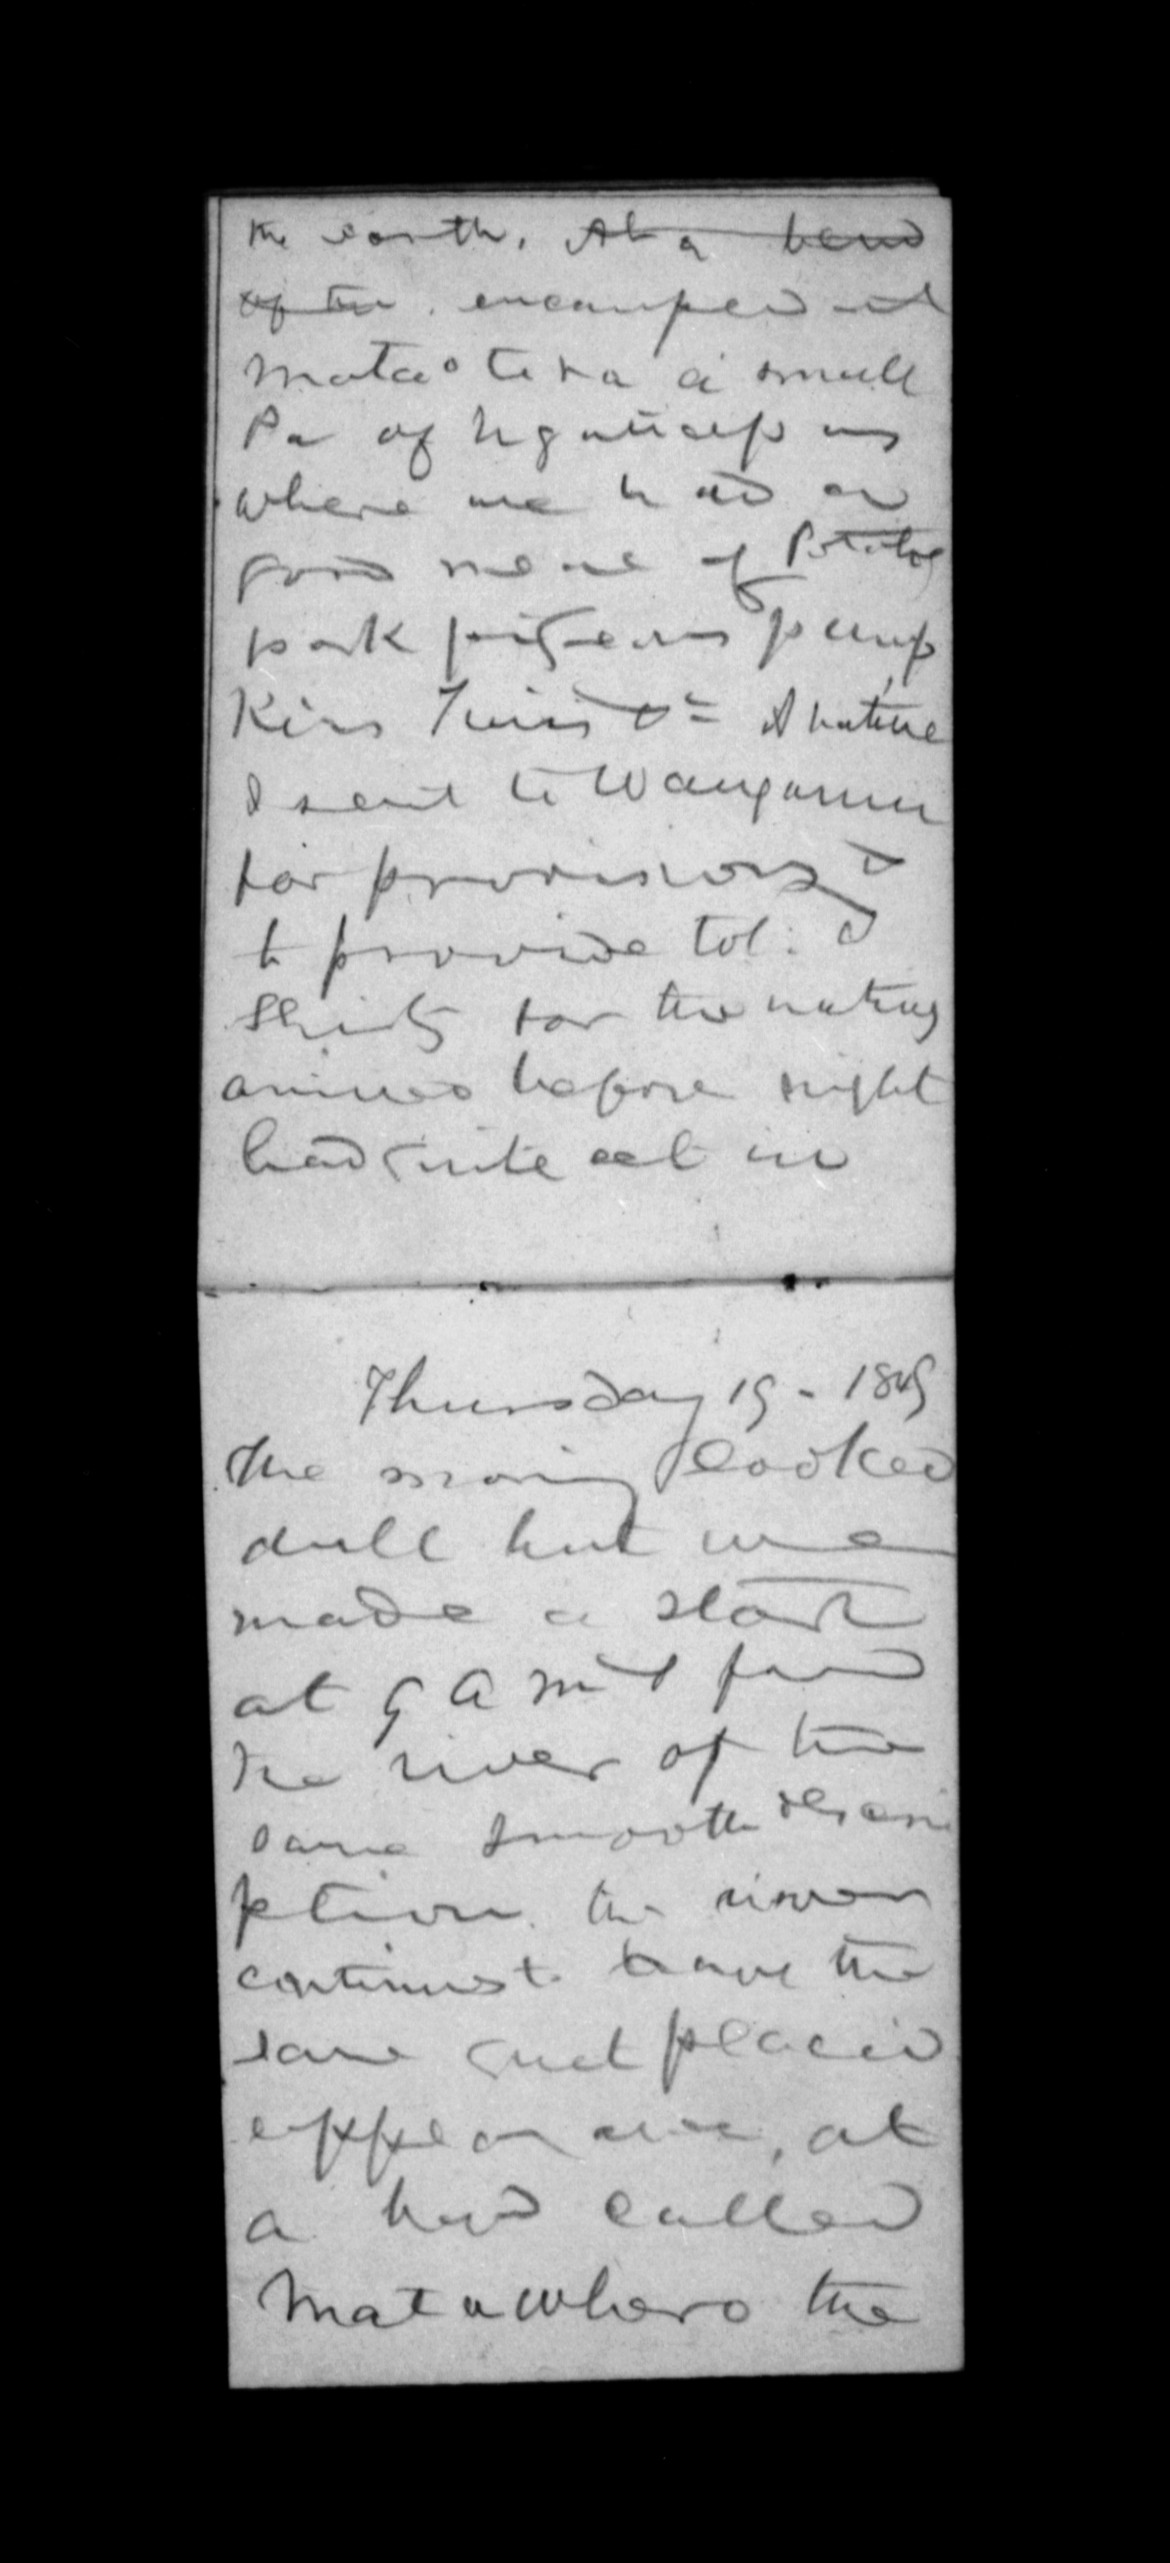 the earth. At a bend
of the. encamped at
Mataotera a small
Pa of Ngatiapas
where we had a
good meal of Potatoes
pork pigeons pump
kins &c A native
I sent to Wanganui
for provisions &
to provide tob: &
Shirts for the natives
arrived before night
had quite set in
Thursday 19 - 1849
The morning looked
dull but we
made a start
at 9 A M & found
the river of the
same smooth descri
ption. the river
continues to have the
same quiet placid
appearance, at
a bend called
Matawhero the